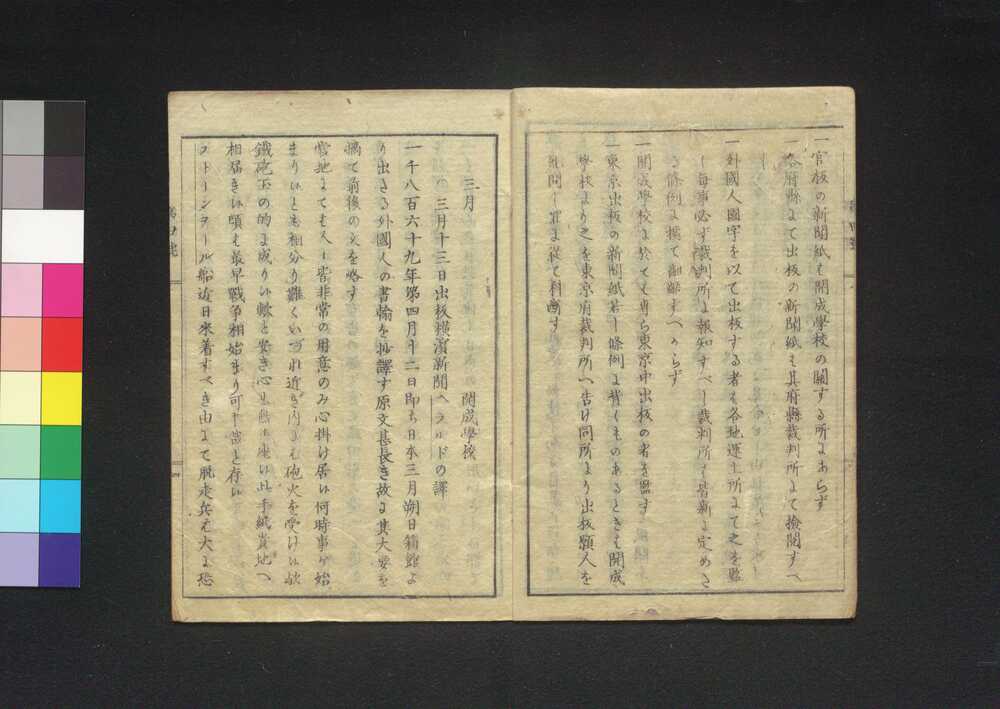 一官板の新聞紙も開成學校の關する所にあらず
一各府縣にて出板の新聞紙も其府縣裁判所にて撿閲すへ
し
一外國人國字を以て出板する者も各地運上所にて之を監
し毎事必ず裁判所に報知すべし裁判所も皆新に定めた
る條例に據て聽斷すへからず
一開成學校に於ても専ら東京中出板の者を監す
一東京出板の新聞紙若し條例に背くものあるときも開成
學校より之を東京府裁判所へ告け同所より出板願人を
糺問し罪に從て科斷す
三月 開成學校
○三月十三日出板横濱新聞ヘラルドの譯
一千八百六十九年第四月十二日即ち日本三月朔日箱館よ
り出せる外國人の書翰を抄譯す原文甚長き故に其大要を
摘て前後の文を略す
當地にても人々皆非常の用意のみ心掛け居い何時事が始
まりいとも相分り難くいづれ近き内にも砲火を受けい歟
鐵砲玉の的に成りい歟と安き心も無く座い此手紙貴地へ
相届きい頃も最早戰爭相始まり可申哉と存い
ストーンヲール船近日来着すべき由にて脱走兵も大に恐